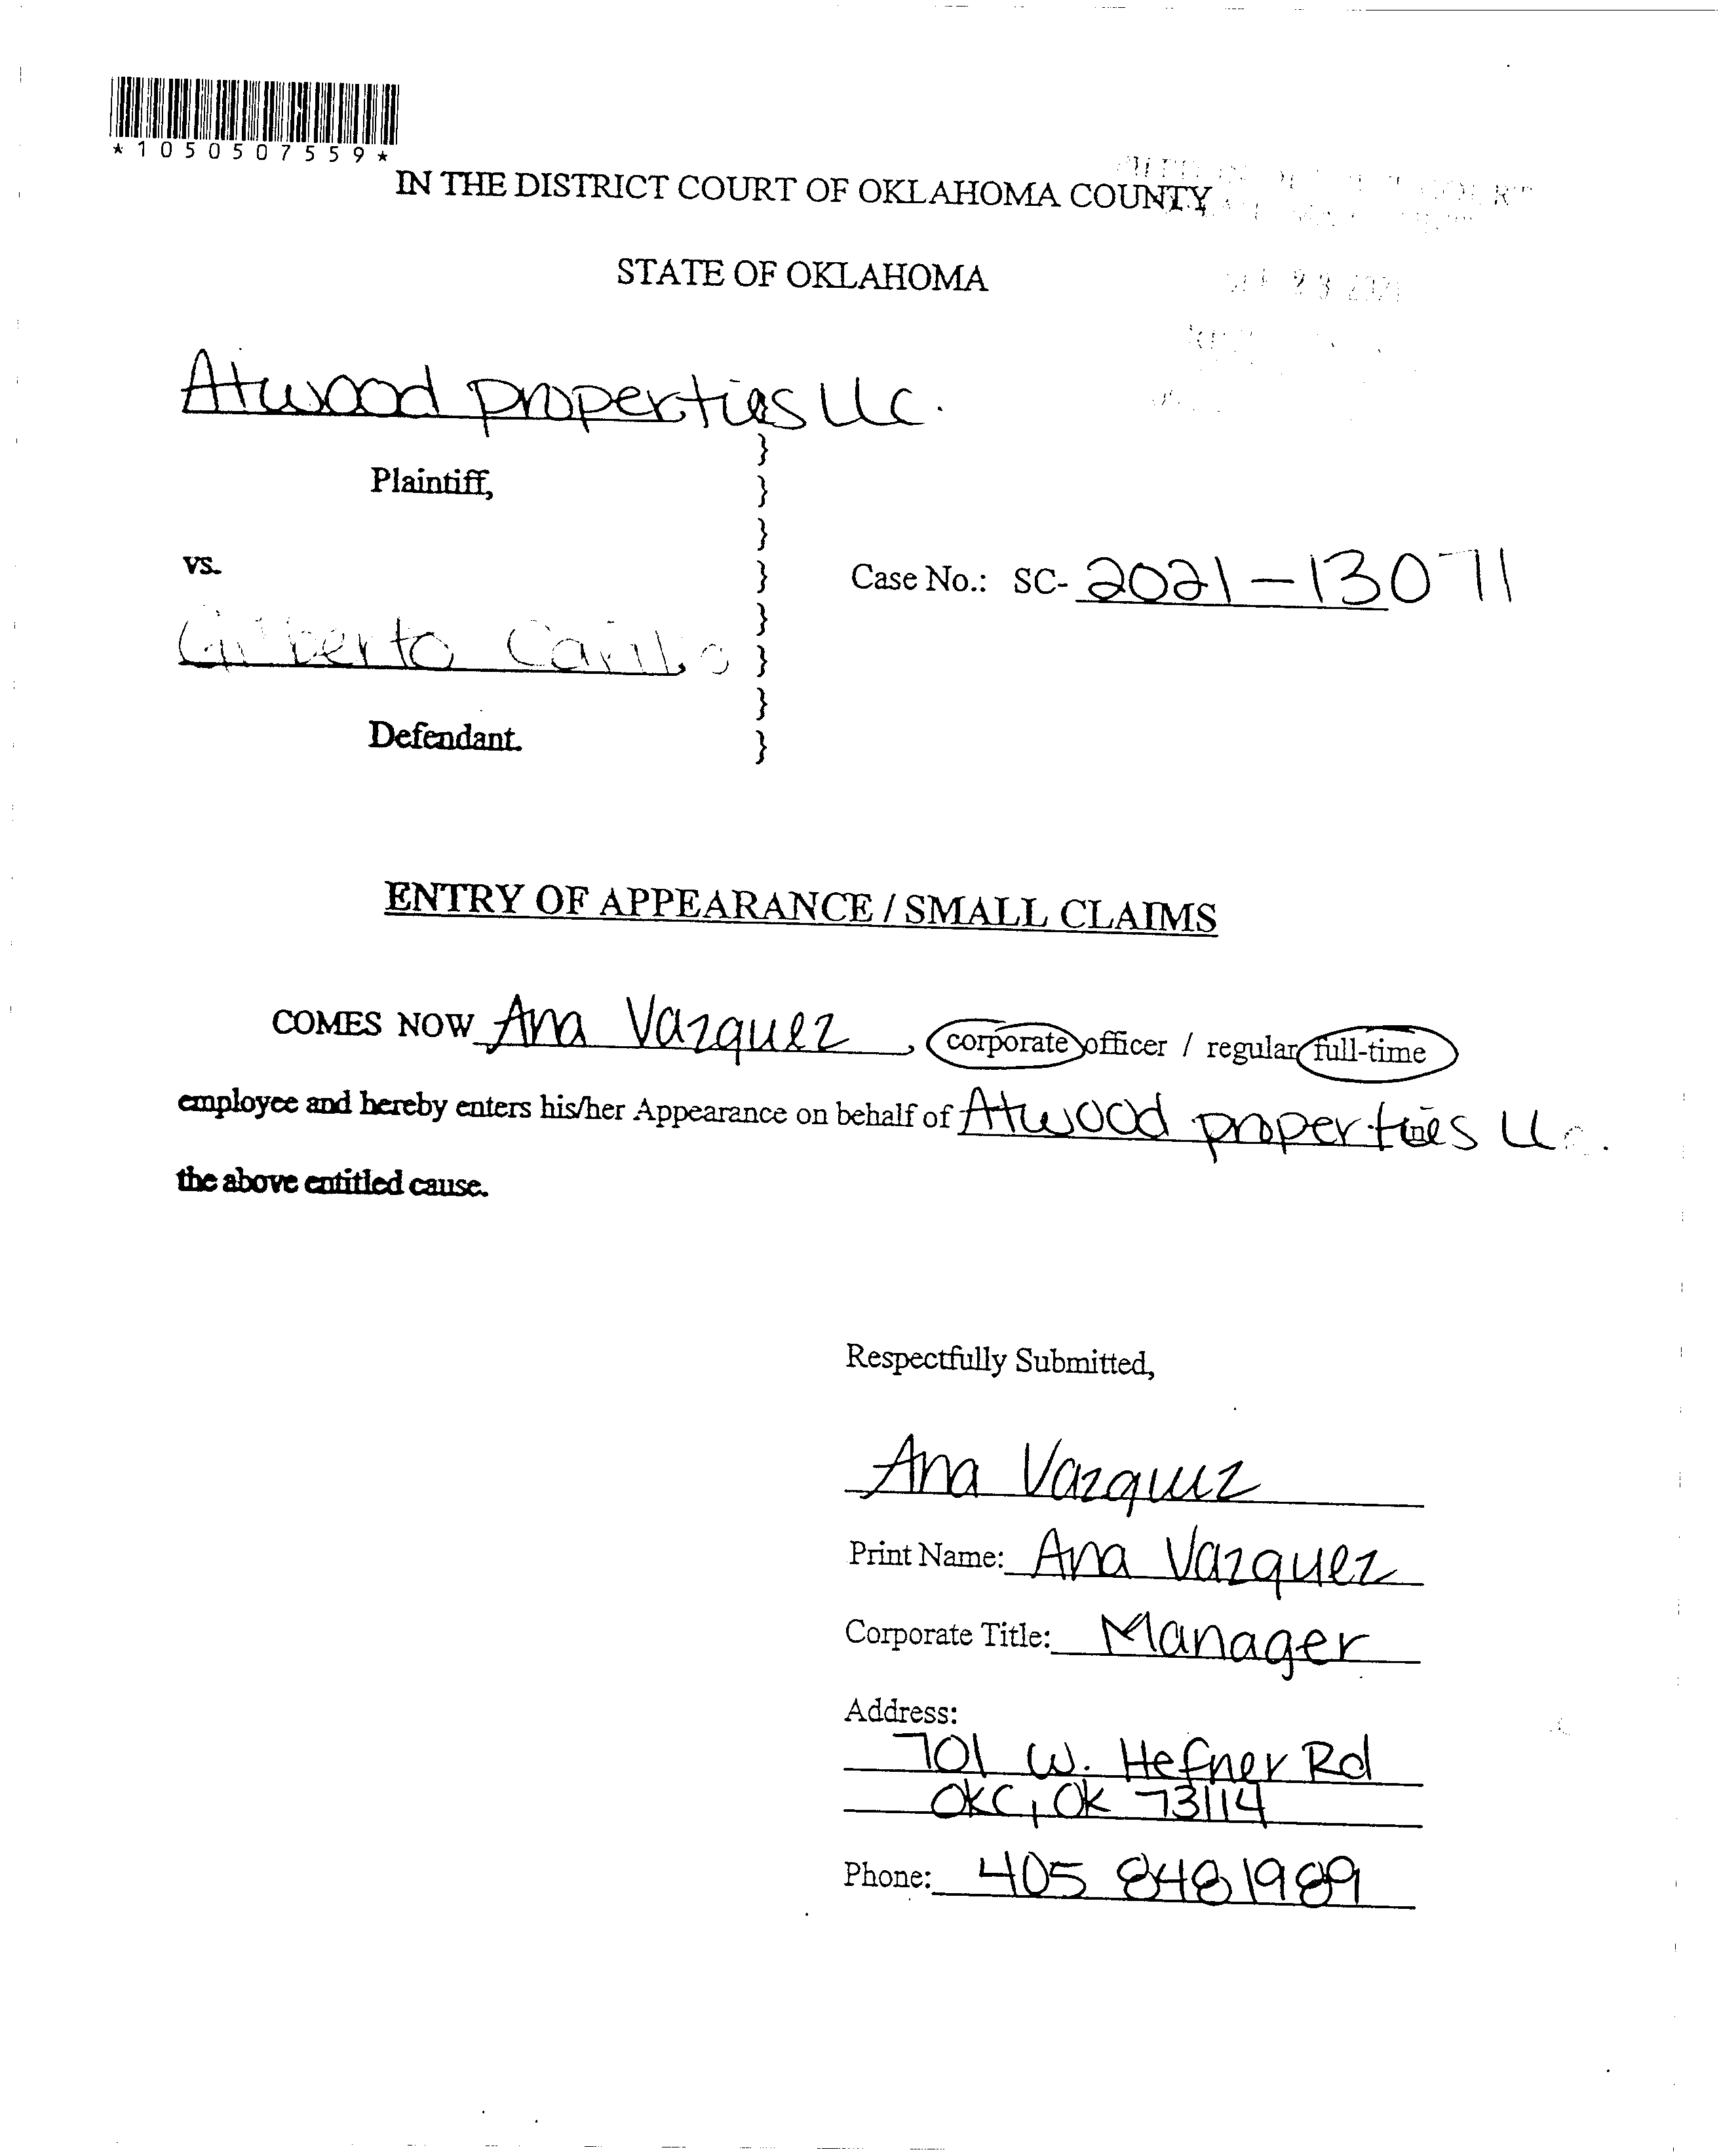 *1050507559*
IN THE DISTRICT COURT OF OKLAHOMA COUNTY
STATE OF OKLAHOMA
Atwood properties llc.
}
Plaintiff,
}
}
vs.
}
Case No.: SC- 2021-13071
}
Gilberto
}
}
Defendant.
}
ENTRY OF APPEARANCE / SMALL CLAIMS
COMES NOW Ana Vazquez, corporate officer / regular full-time
employee and hereby enters his/her Appearance on behalf of Atwood properties in
the above entitled cause.
Respectfully Submitted,
Ana Vazquez
Print Name: Ana Vazquez
Corporate Title: Manager
Address:
701 W. Hefner Rd
OKC, OK 73114
Phone: 405 848 1989